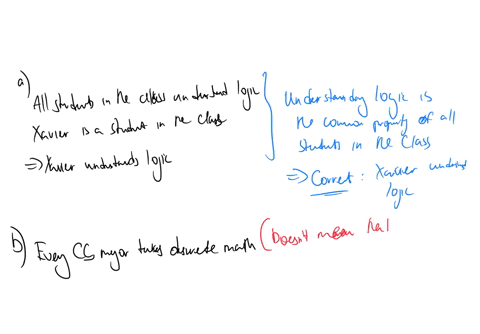 a) All students in the class understand logic
Xavier is a student in the class
⇒ Xavier understands logic
Understanding logic is
the common property of all
students in the class
⇒ Correct: Xavier understands
logic
b) Every CS major takes discrete math (Doesn't mean that